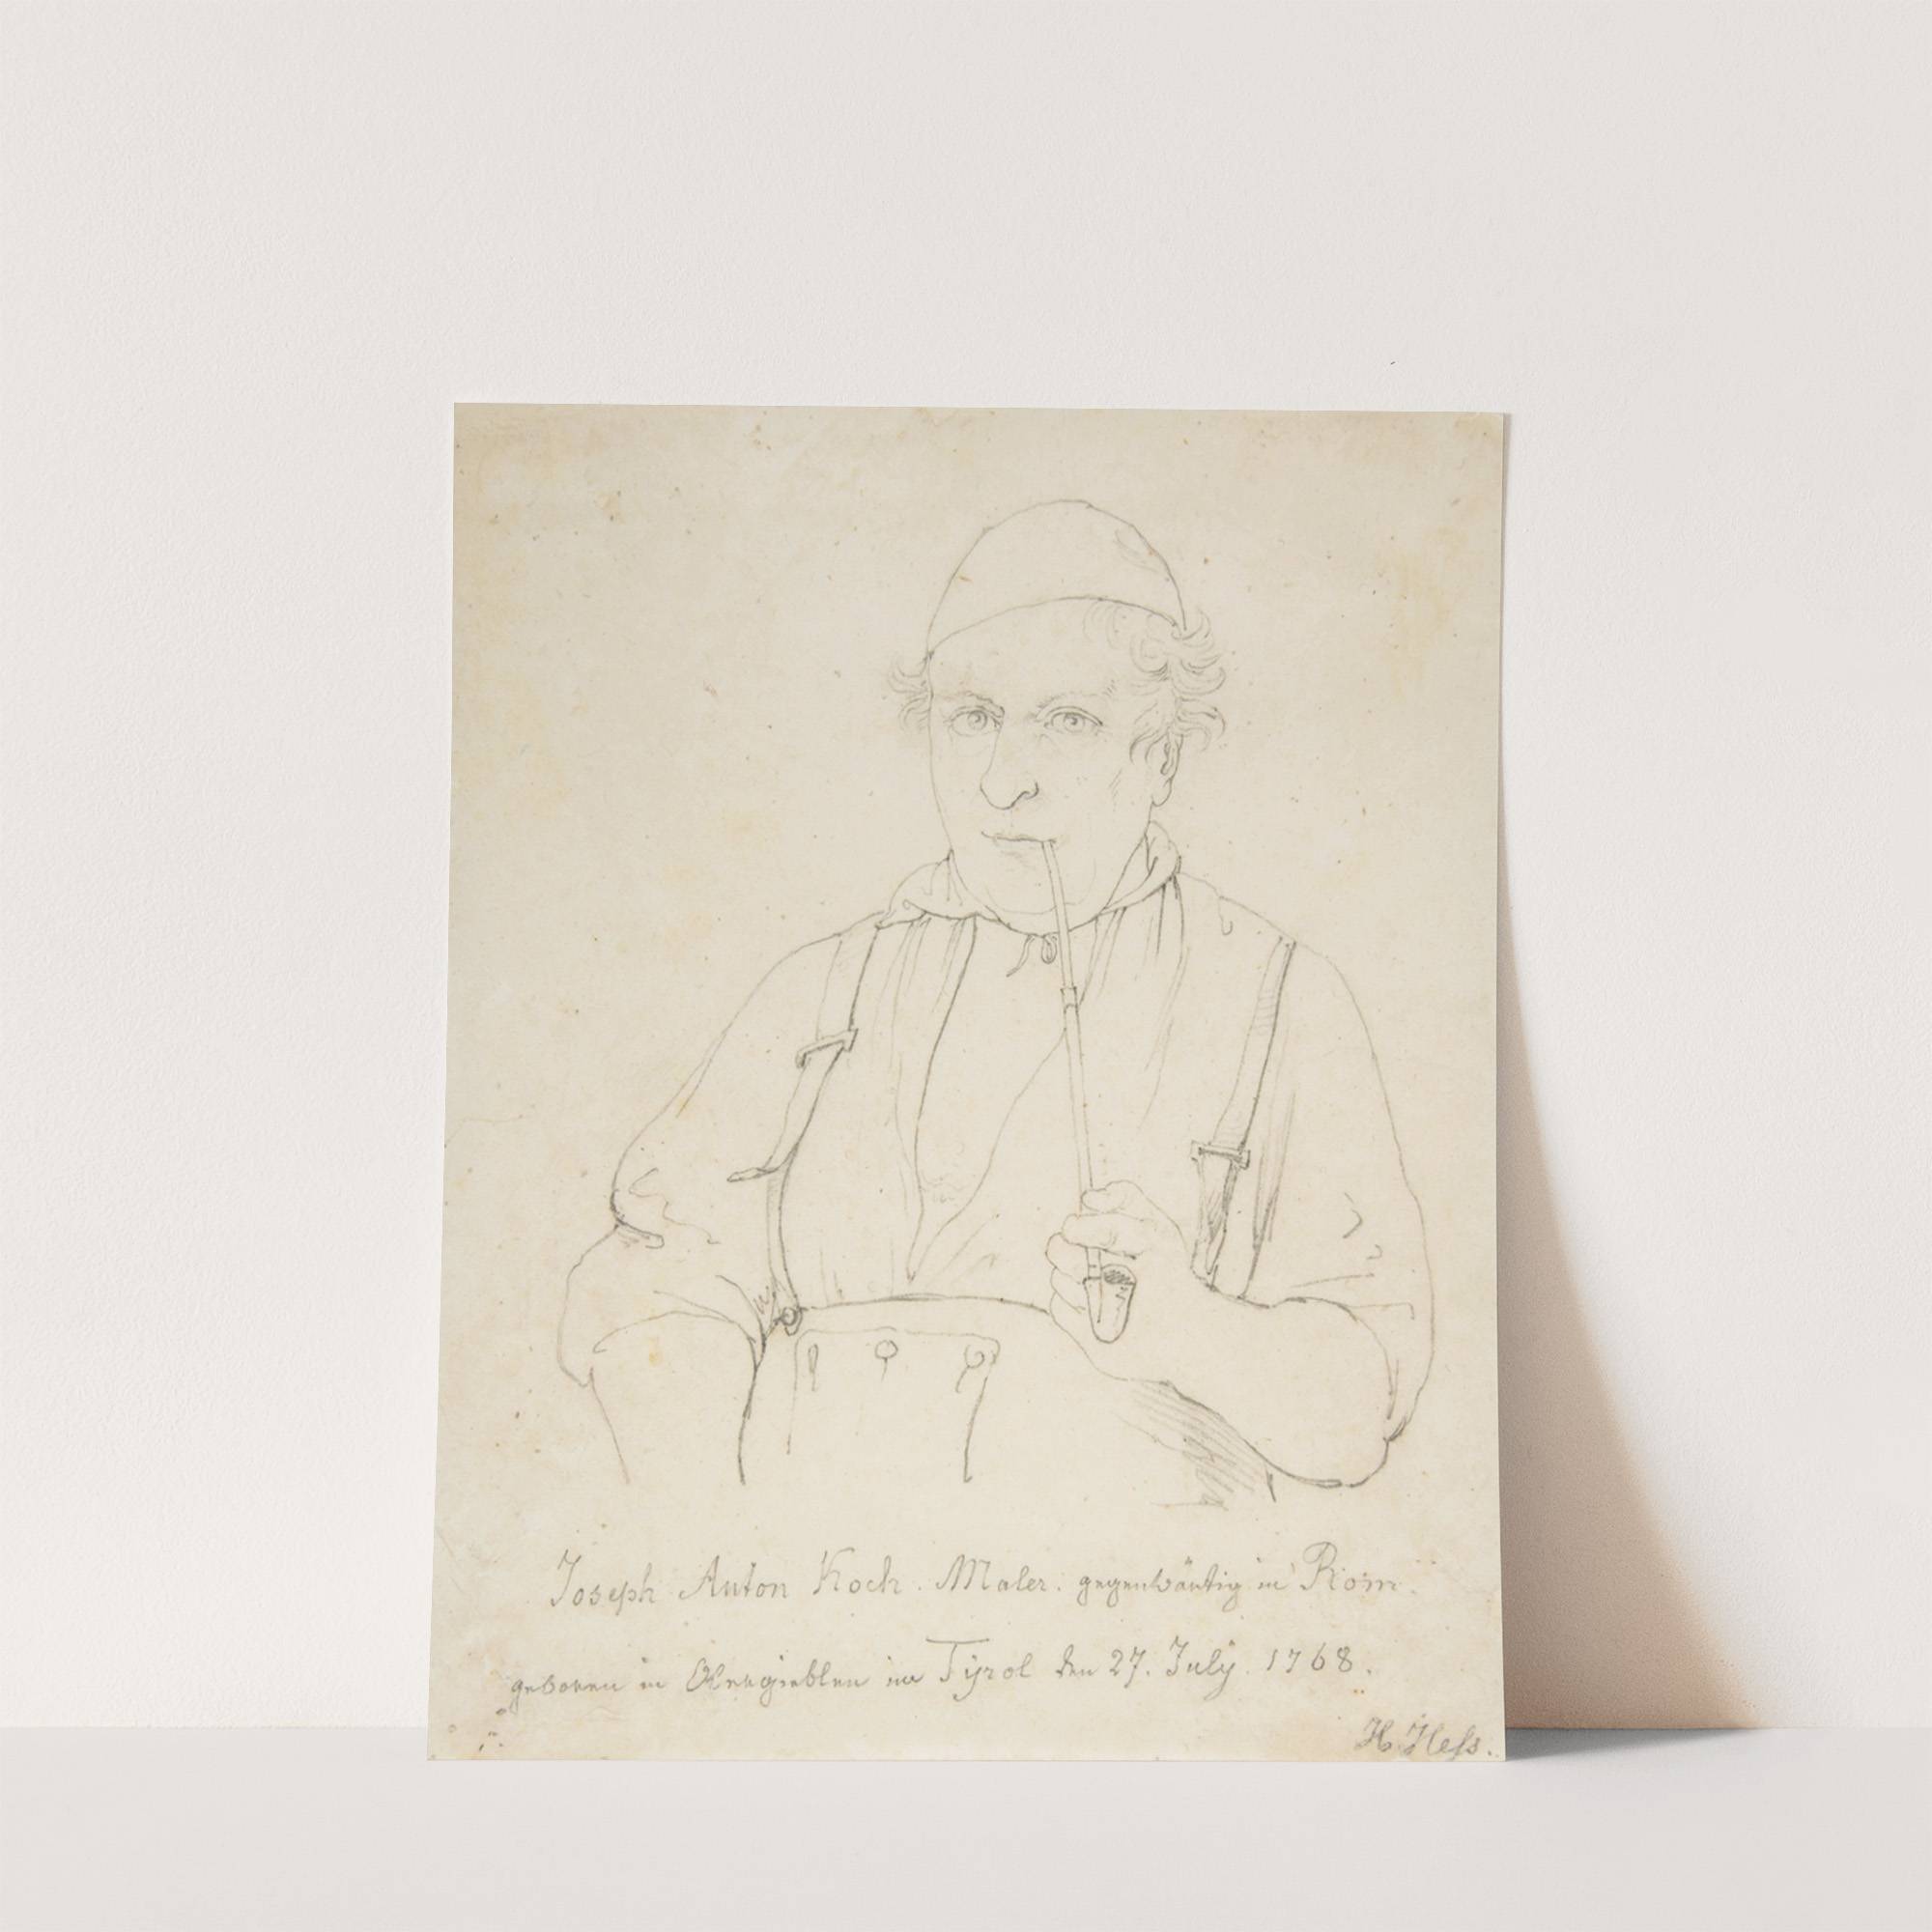 Joseph Anton Koch. Maler. gegenwärtig in Rom.
geboren in Obergieblen im Tyrol den 27. July. 1768.
H. Hess.